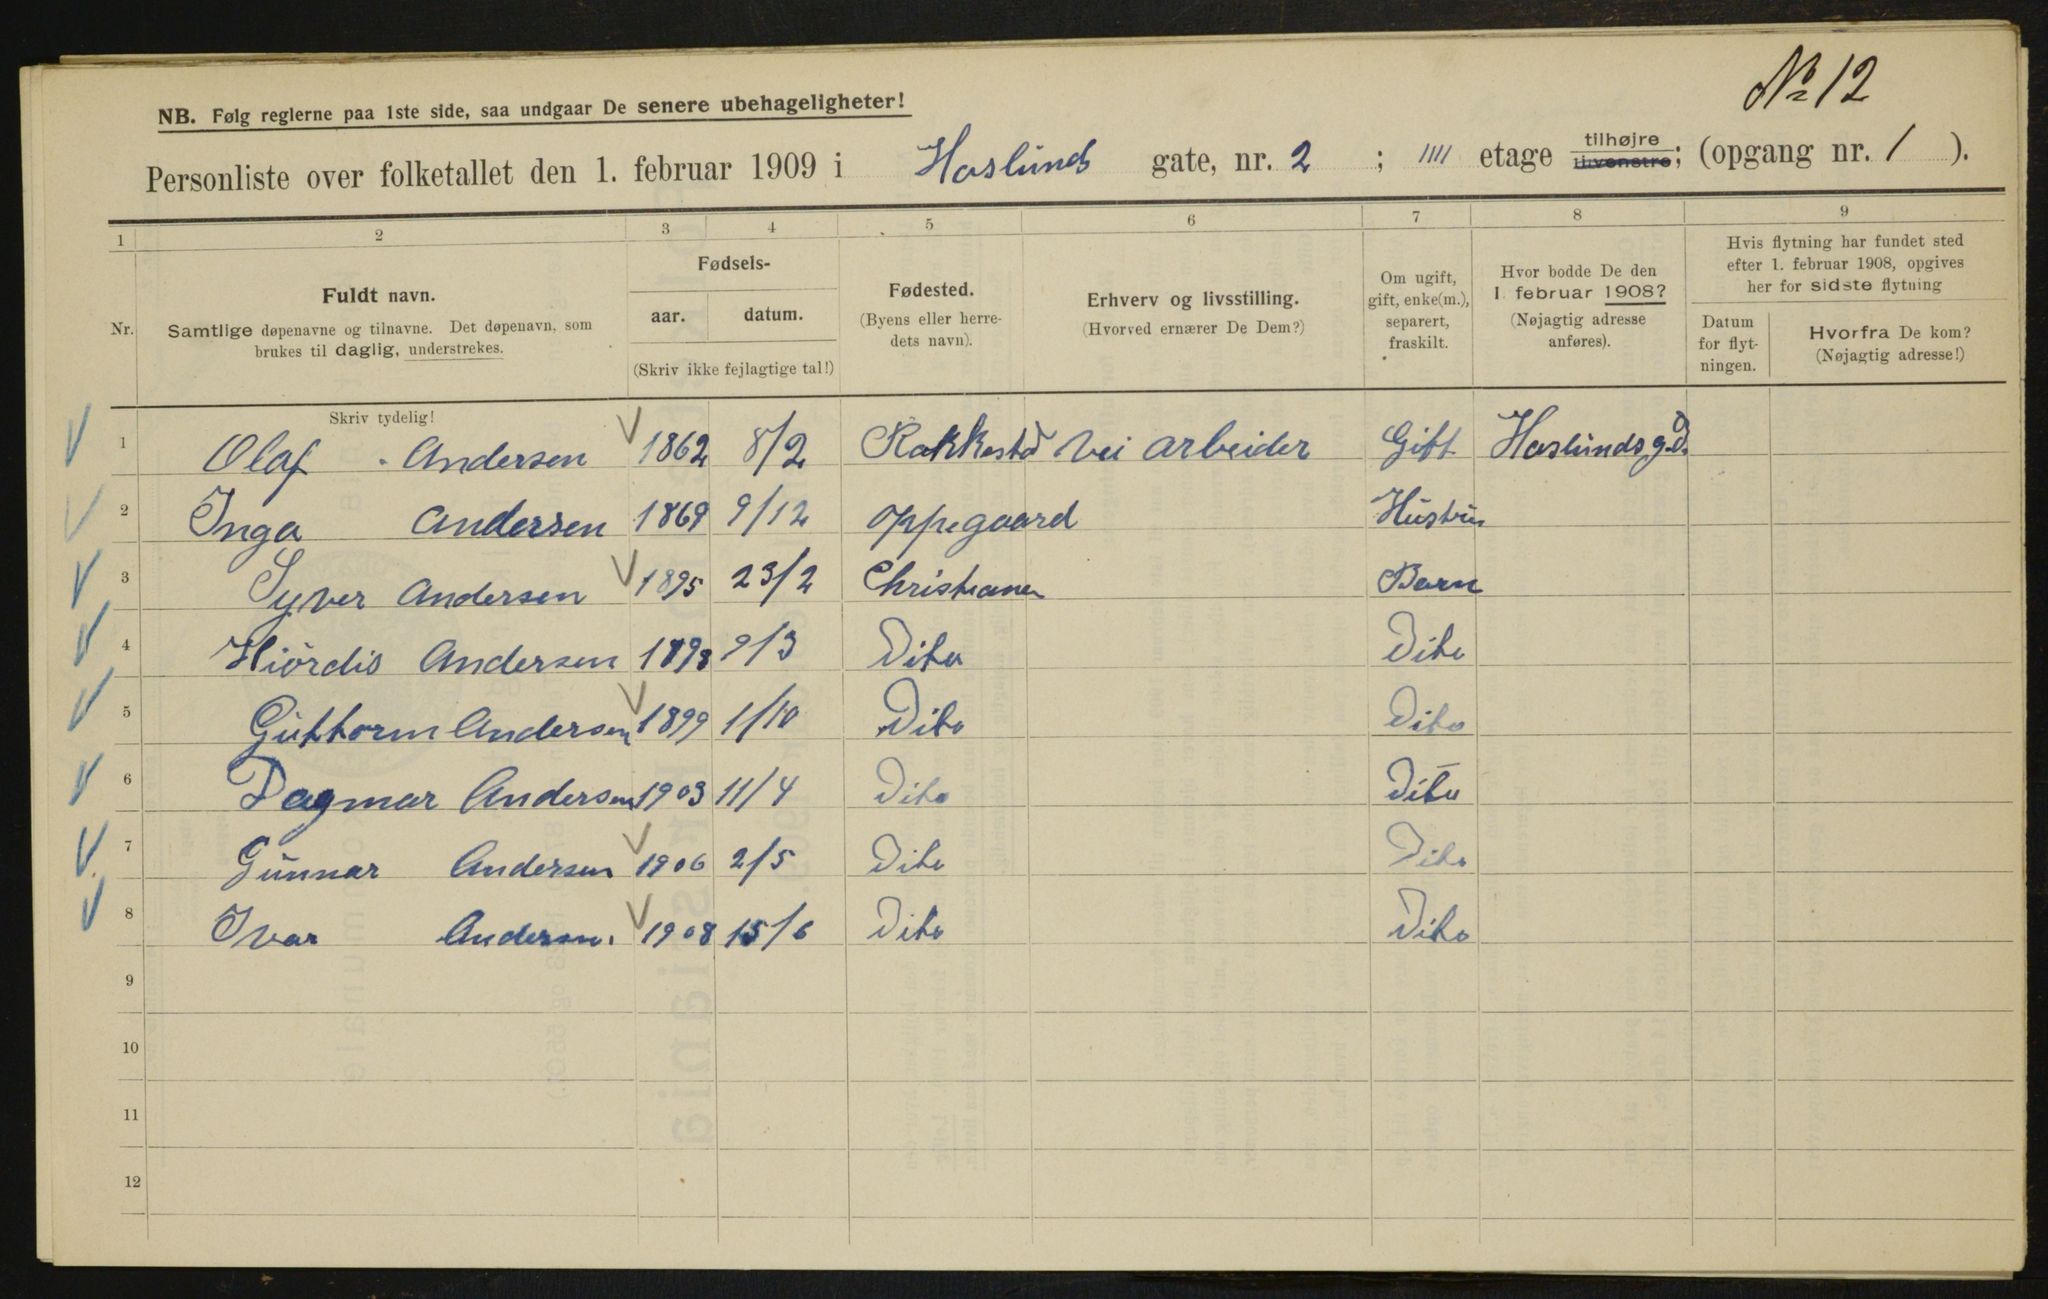 № 12
NB. Følg reglerne paa 1ste side, saa undgaar De senere ubehageligheter!
Personliste over folketallet den 1. februar 1909 i Haslunds gate, nr. 2 ; IIII etage tilhøjre tilvenstre; (opgang nr. 1 ).
1 2 3 4 5 6 7 8 9
Nr.
Fuldt navn.
Samtlige døpenavne og tilnavne. Det døpenavn, som
brukes til daglig, understrekes.
Fødsels-
aar. datum.
(Skriv ikke fejlagtige tal!)
Fødested.
(Byens eller herre-
dets navn).
Erhverv og livsstilling.
(Hvorved ernærer De Dem?)
Om ugift,
gift, enke(m.),
separert,
fraskilt.
Hvor bodde De den
1. februar 1908?
(Nøjagtig adresse
anføres).
Hvis flytning har fundet sted
efter 1. februar 1908, opgives
her for sidste flytning
Datum
for flyt-
ningen.
Hvorfra De kom?
(Nøjagtig adresse!)
Skriv tydelig!
1 Olaf Andersen 1862 8/2 Rakkestad Vei arbeider Gift Haslundsgd.
2 Inga Andersen 1869 9/12 Oppegaard Hustru
3 Syver Andersen 1895 23/2 Christiania Barn
4 Hiördis Andersen 1898 9/3 Dito Dito
5 Guttorm Andersen 1899 1/10 Dito Dito
6 Dagmar Andersen 1903 11/4 Dito Dito
7 Gunnar Andersen 1906 2/5 Dito Dito
8 Ivar Andersen. 1908 15/6 Dito Dito
9
10
11
12